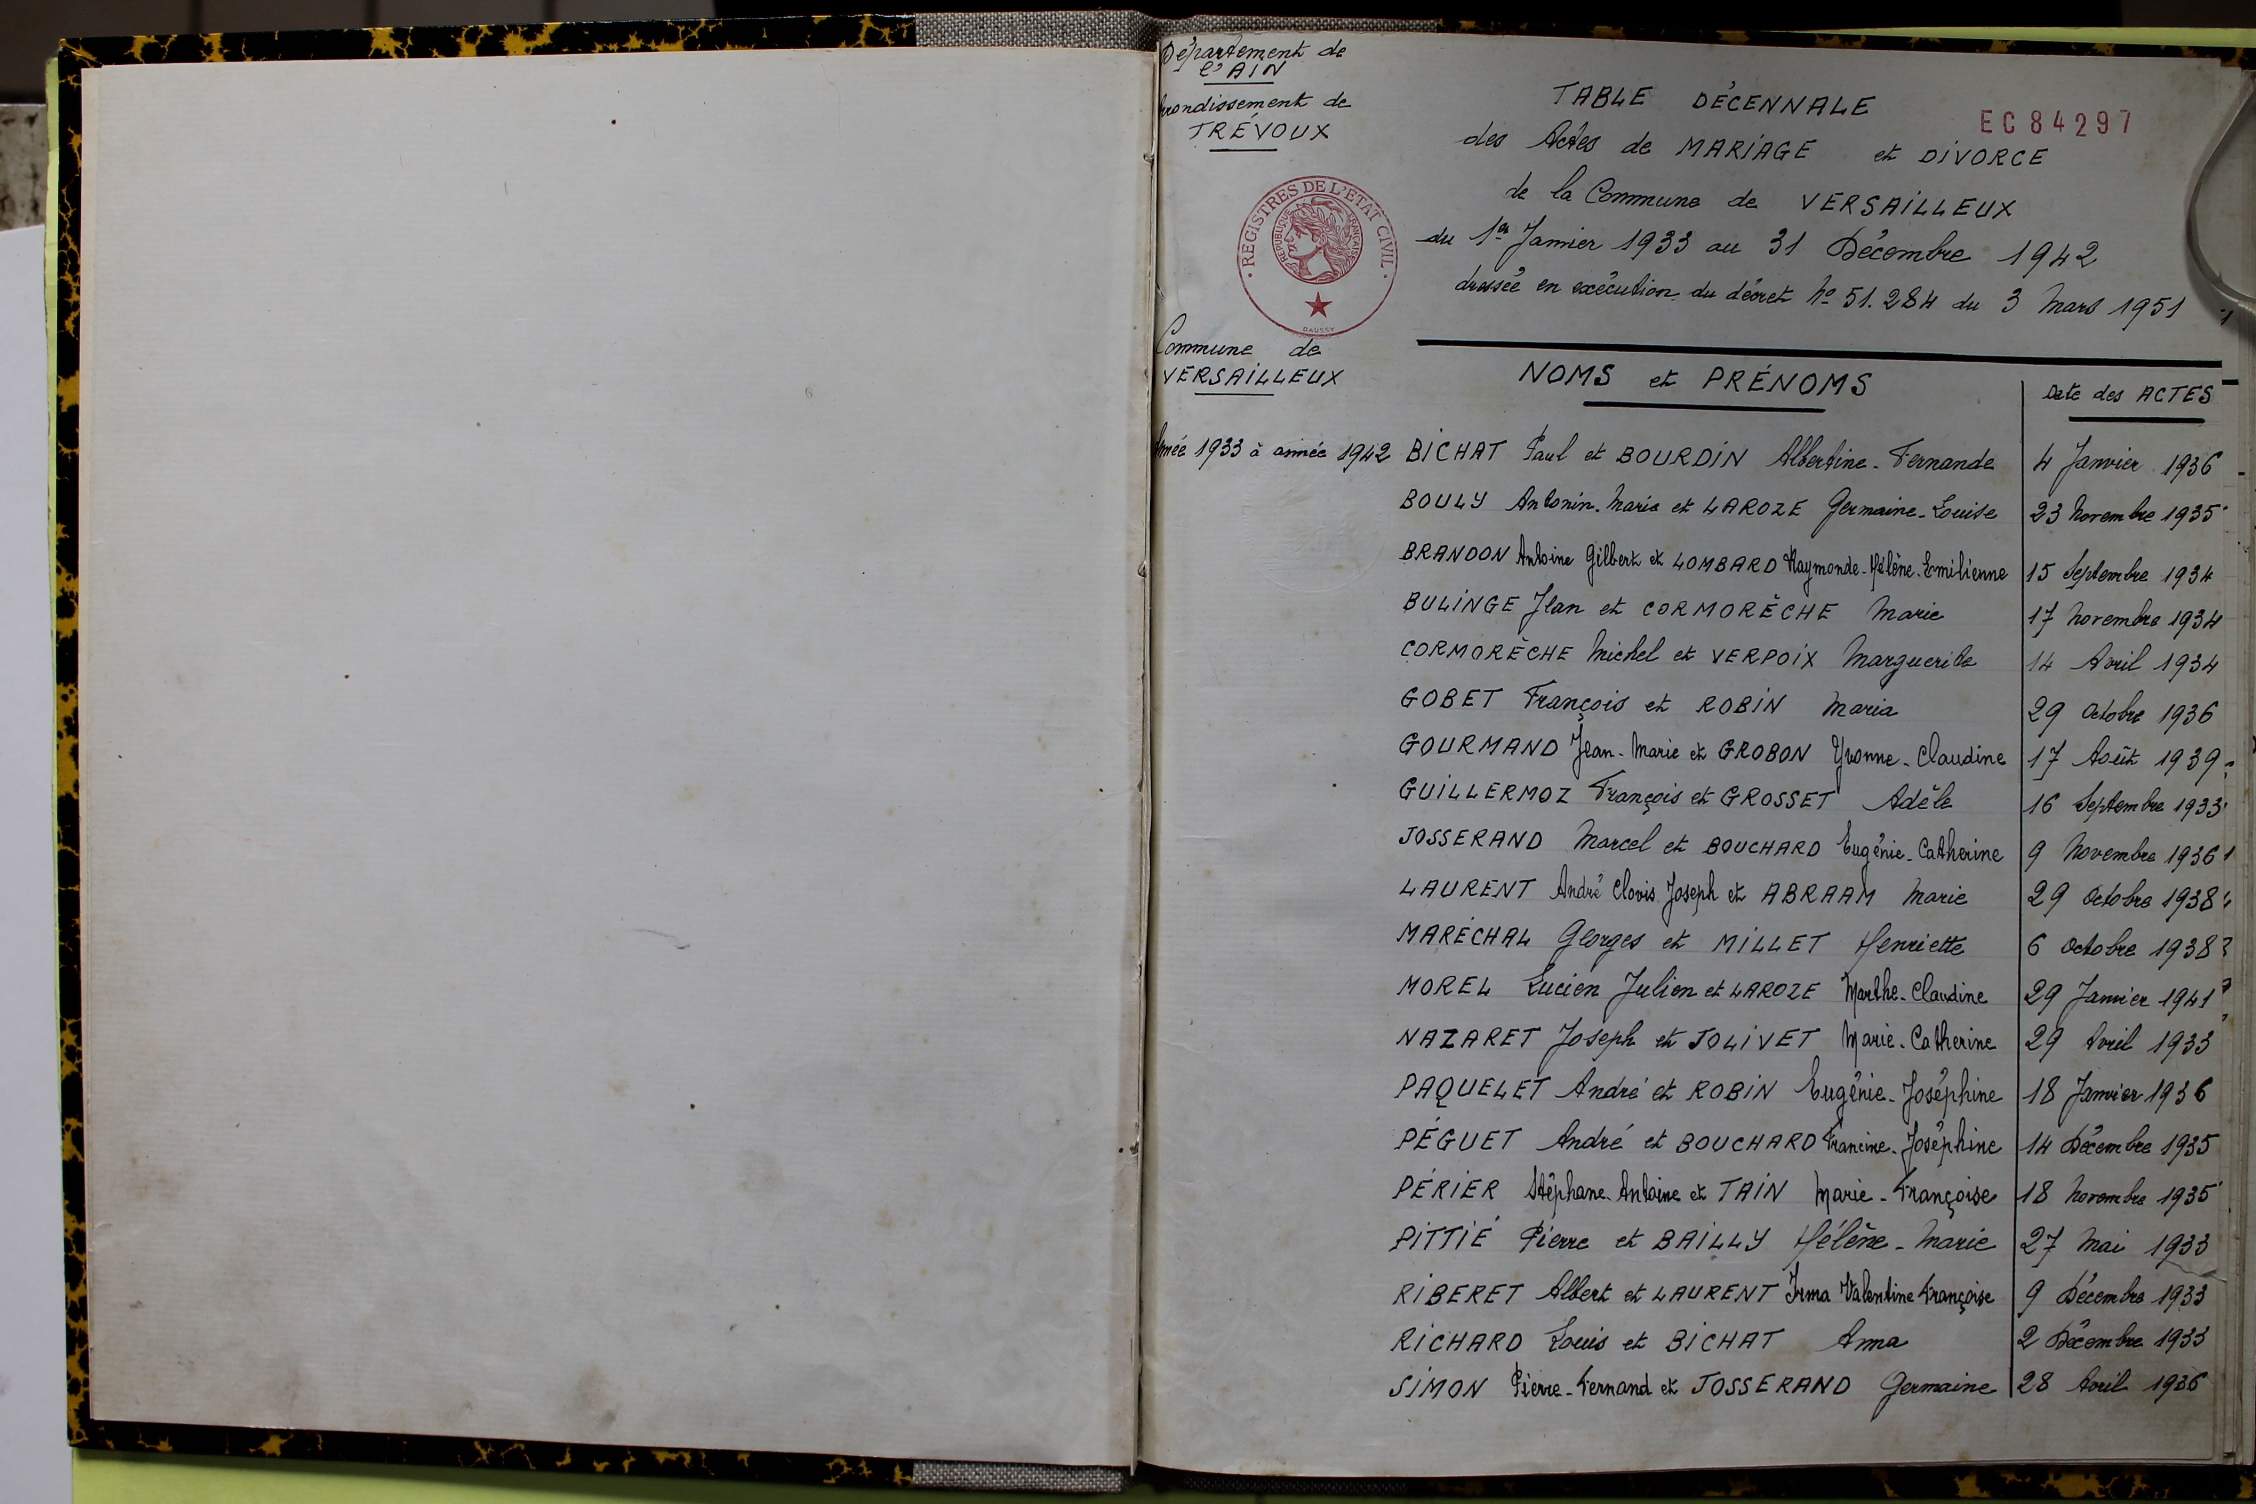 Département de
l'AIN
Arrondissement de
TRÉVOUX
REGISTRES DE L'ETAT CIVIL
REPUBLIQUE FRANÇAISE
DAUSSY
Commune de
VERSAILLEUX
TABLE DÉCENNALE
EC84297
des Actes de MARIAGE et DIVORCE
de la Commune de VERSAILLEUX
du 1er Janvier 1933 au 31 Décembre 1942
dressée en exécution du décret No 51.284 du 3 Mars 1951
NOMS et PRÉNOMS Date des ACTES
Année 1933 à année 1942 BICHAT Paul et BOURDIN Albertine-Fernande 4 Janvier 1936
BOULY Antonin-Marie et LAROZE Germaine-Louise 23 Novembre 1935
BRANDON Antoine Gilbert et LOMBARD Raymonde-Hélène-Emilienne 15 Septembre 1934
BULINGE Jean et CORMORÈCHE Marie 17 Novembre 1934
CORMORÈCHE Michel et VERPOIX Marguerite 14 Avril 1934
GOBET François et ROBIN Maria 29 Octobre 1936
GOURMAND Jean-Marie et GROBON Yvonne-Claudine 17 Août 1939
GUILLERMOZ François et GROSSET Adèle 16 Septembre 1933
JOSSERAND Marcel et BOUCHARD Eugénie-Catherine 9 Novembre 1936
LAURENT André Clovis Joseph et ABRAAM Marie 29 Octobre 1938
MARÉCHAL Georges et MILLET Henriette 6 Octobre 1938
MOREL Lucien Julien et LAROZE Marthe-Claudine 29 Janvier 1941
NAZARET Joseph et JOLIVET Marie-Catherine 29 Avril 1933
PAQUELET André et ROBIN Eugénie-Joséphine 18 Janvier 1936
PÉGUET André et BOUCHARD Francine-Joséphine 14 Décembre 1935
PÉRIER Stéphane-Antoine et TAIN Marie-Françoise 18 Novembre 1935
PITTIÉ Pierre et BAILLY Hélène-Marie 27 Mai 1933
RIBERET Albert et LAURENT Irma Valentine Françoise 9 Décembre 1933
RICHARD Louis et BICHAT Anna 2 Décembre 1933
SIMON Pierre-Fernand et JOSSERAND Germaine 28 Avril 1936